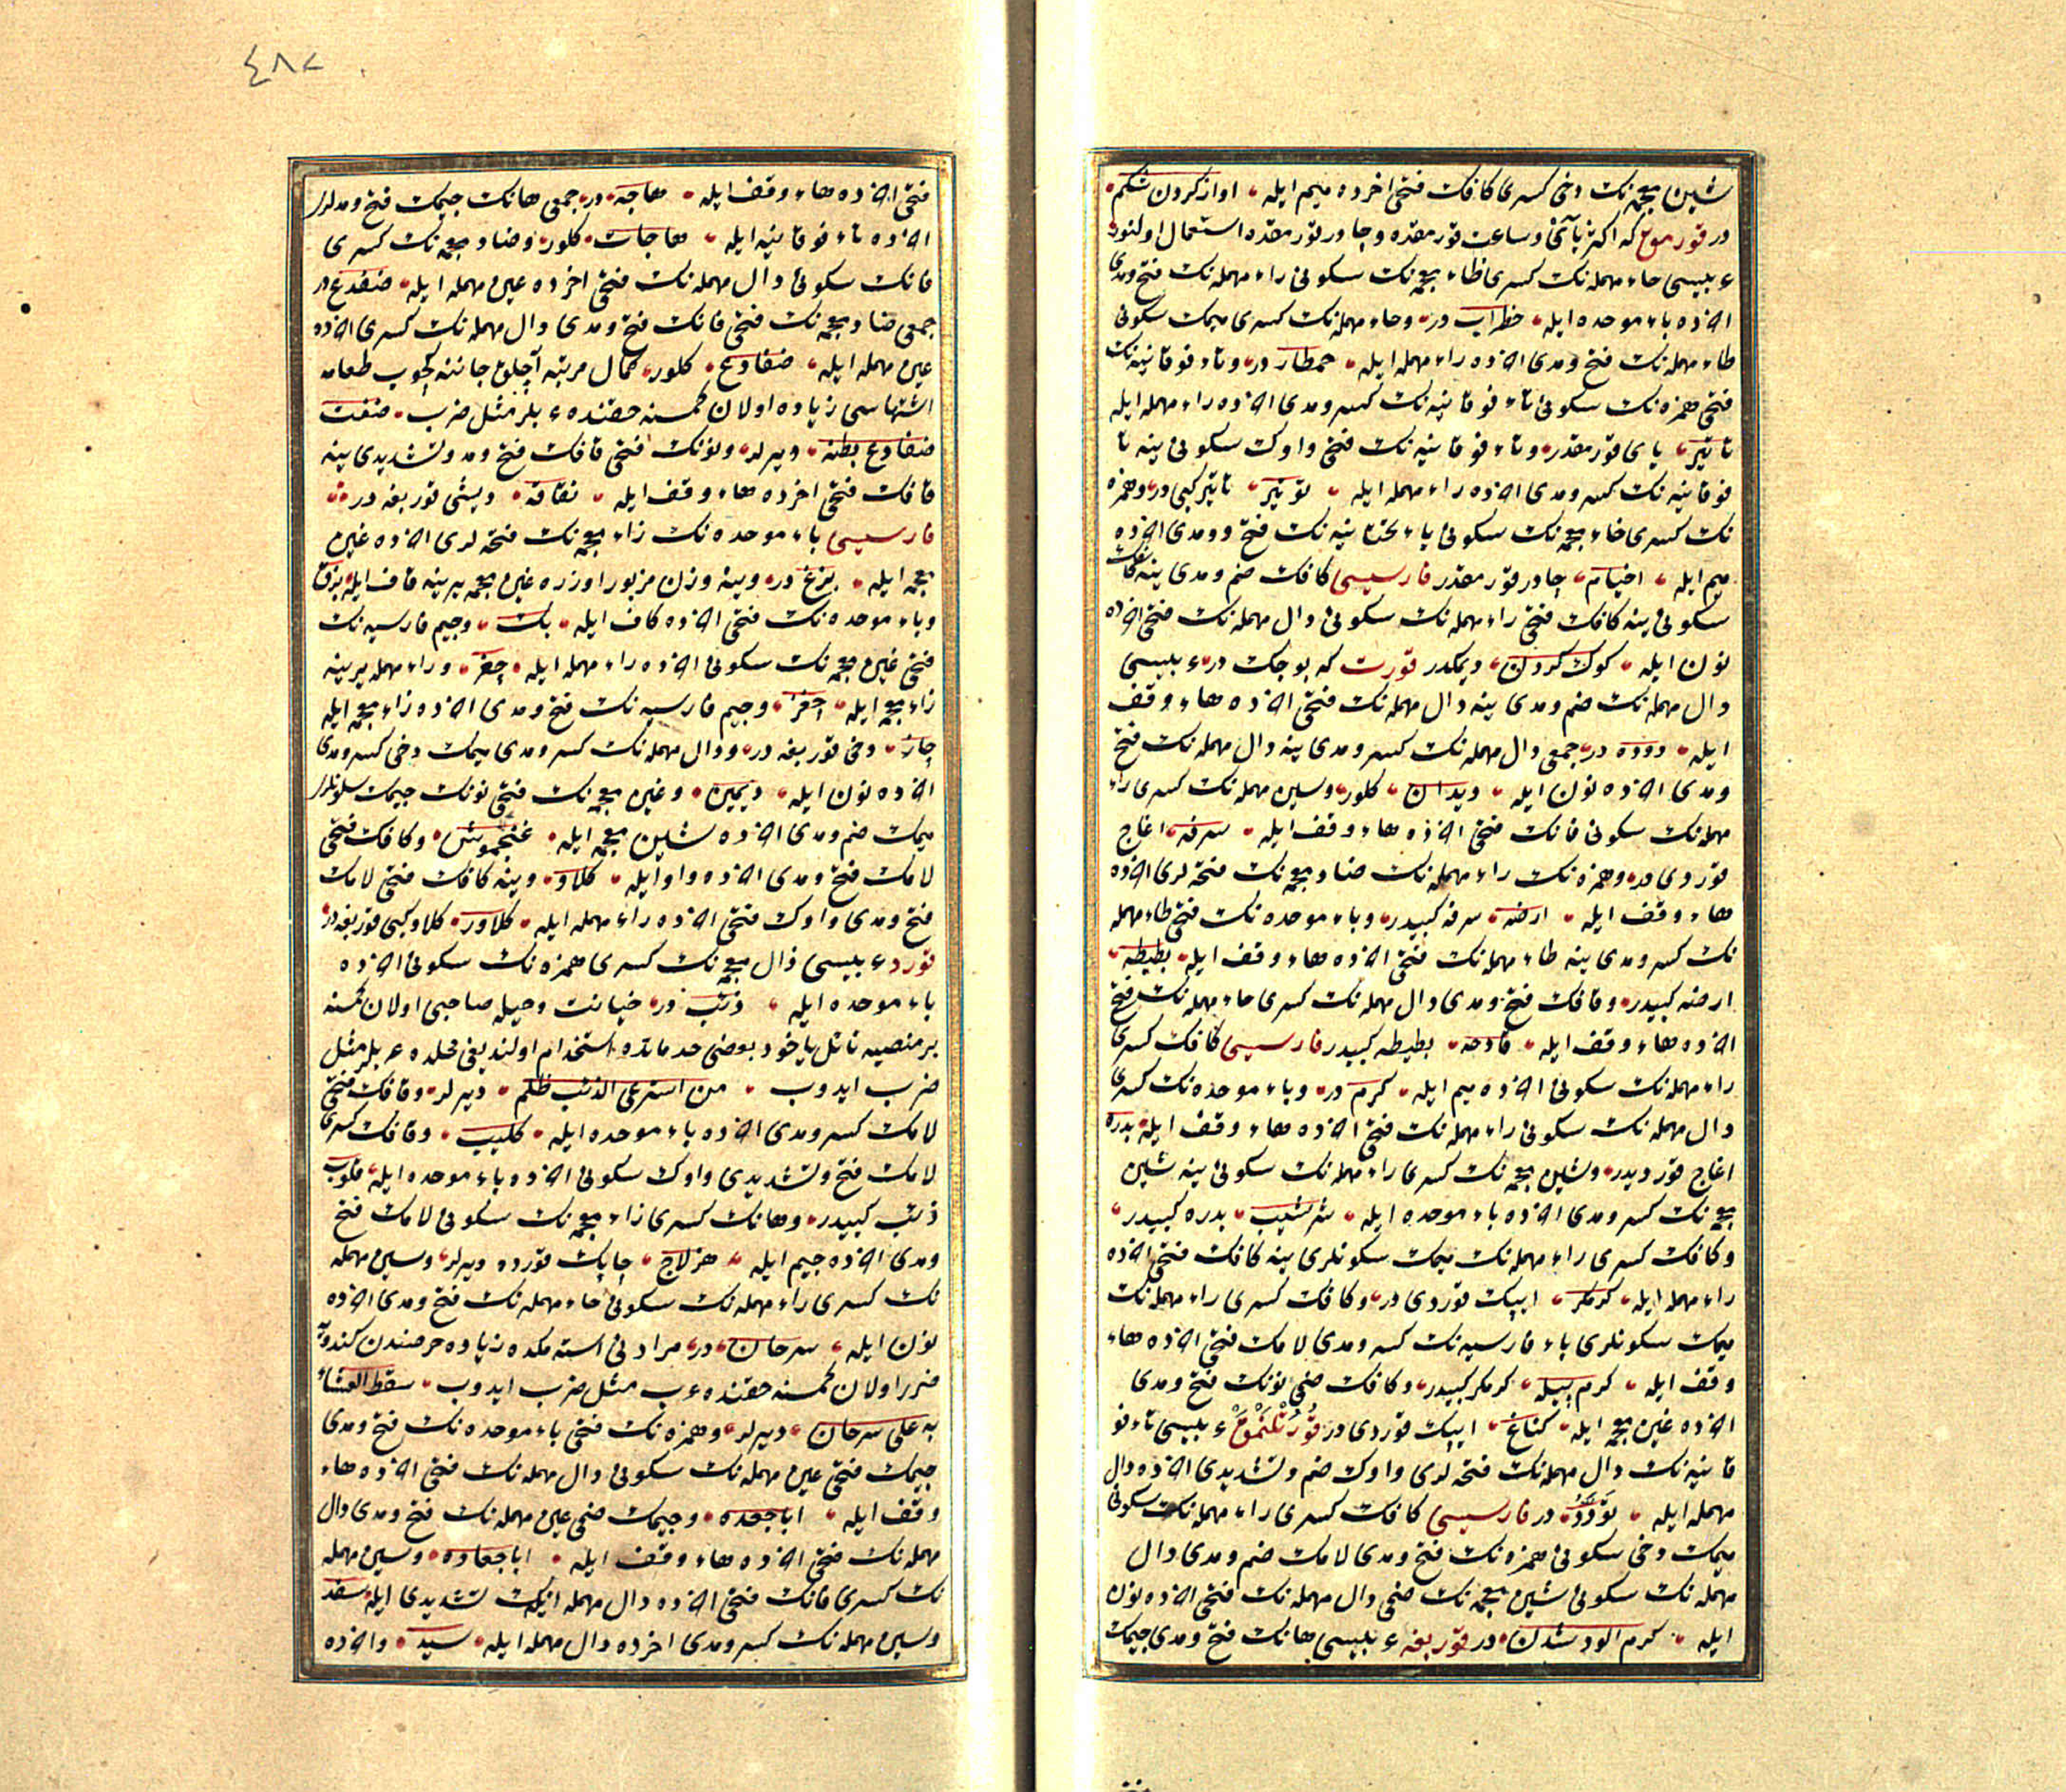 شین معجمه‌نک دخی کسری کافک فتحی اخرده میم ایله اواز کردن شکم
در قورمق که اکثر یایی وساعت قورمقده وچادر قورمقده استعمال اولنور
عربیسی حاء مهمله‌نک کسری ظاء معجمه‌نک سکونی راء مهمله‌نک فتح ومدی
اخرده باء موحده ایله حظراب در وحاء مهمله‌نک کسری میمک سکونی
طاء مهمله‌نک فتح ومدی اخرده راء مهمله ایله حمطار در وتاء فوقانیه‌نک
فتحی همزه‌نک سکونی تاء فوقانیه‌نک کسر ومدی اخرده راء مهمله ایله
تاتیر یای قورمقدر وتاء فوقانیه‌نک فتحی واوک سکونی ینه تا
فوقانیه‌نک کسر ومدی اخرده راء مهمله ایله توتیر تاتیر کبی در وهمزه
نک کسری خاء معجمه‌نک سکونی یاء تحتانیه‌نک فتح وومدی اخرده
میم ایله اخیام چادر قورمقدر فارسیسی کافک ضم ومدی ینه کافک
سکونی ینه کافک فتحی راء مهمله‌نک سکونی دال مهمله‌نک فتحی اخرده
نون ایله کوک کردن دیمکدر قورت که بوجک در عربیسی
دال مهمله‌نک ضم ومدی ینه دال مهمله‌نک فتحی اخرده هاء وقف
ایله دوده در جمعی دال مهمله‌نک کسر ومدی ینه دال مهمله‌نک فتح
ومدی اخرده نون ایله دیدان کلور وسین مهمله‌نک کسری راء
مهمله‌نک سکونی فانک فتحی اخرده هاء وقف ایله سرفه اغاج
قوردی در وهمزه‌نک راء مهمله‌نک ضاد معجمه‌نک فتحه‌لری اخرده
هاء وقف ایله ارضه سرفه کبیدر وباء موحده‌نک فتحی طاء مهمله
نک کسر ومدی ینه طاء مهمله‌نک فتحی اخرده هاء وقف ایله بطیطه
ارضه کبیدر وقافک فتح ومدی دال مهمله‌نک کسری حاء مهمله‌نک فتحی
اخرده هاء وقف ایله قادحه بطیطه کبیدر فارسیسی کافک کسری
راء مهمله‌نک سکونی اخرده میم ایله کرم در وباء موحده‌نک کسری
دال مهمله‌نک سکونی راء مهمله‌نک فتحی اخرده هاء وقف ایله بدره
اغاج قوردیدر وشین معجمه‌نک کسری راء مهمله‌نک سکونی ینه شین
معجمه‌نک کسر ومدی اخرده باء موحده ایله شرشیب بدره کبیدر
وکافک کسری راء مهمله‌نک میمک سکونلری ینه کافک فتحی اخرده
راء مهمله ایله کرمکر ایپک قوردی در وکافک کسری راء مهمله‌نک
میمک سکونلری باء فارسیه‌نک کسر ومدی لامک فتحی اخرده هاء
وقف ایله کرم پیله کرمکر کبیدر وکافک ضمی نونک فتح ومدی
اخرده غین معجمه ایله کناغ ایپک قوردی در قورتلنمق عربیسی تاء فو
قانیه‌نک دال مهمله‌نک فتحه‌لری واوک ضم وتشدیدی اخرده دال
مهمله ایله تودد در فارسیسی کافک کسری راء مهمله‌نک سکونی
میمک دخی سکونی همزه‌نک فتح ومدی لامک ضم ومدی دال
مهمله‌نک سکونی شین معجمه‌نک ضمی دال مهمله‌نک فتحی اخرده نون
ایله کرم الود شدن در قوربغه عربیسی هانک فتح ومدی جیمک
٤٨٧
فتحی اخرده هاء وقف ایله هاجه در جمعی هانک جیمک فتح ومدلری
اخرده تاء فوقانیه ایله هاجات کلور وضاد معجمه‌نک کسری
فانک سکونی دال مهمله‌نک فتحی اخرده عین مهمله ایله ضفدع در
جمعی ضاد معجمه‌نک فتحی فانک فتح ومدی دال مهمله‌نک کسری اخرده
عین مهمله ایله ضفادع کلور کمال مرتبه آچلق جاننه کچوب طعامه
اشتهاسی زیاده اولان کمسنه حقنده عربلر مثل ضرب
ضفادع بطنه دیرلر ونونک فتحی قافک فتح ومد وتشدیدی ینه
قافک فتحی اخرده هاء وقف ایله نقاقه دیشی قوربغه در
فارسیسی باء موحده‌نک زاء معجمه‌نک فتحه‌لری اخرده غین
معجمه ایله بزغ در وینه وزن مزبور اوزره غین معجمه یرینه قاف ایله بزق
وباء موحده‌نک فتحی اخرده کاف ایله بک وجیم فارسیه‌نک
فتحی غین معجمه‌نک سکونی اخرده راء مهمله ایله چغر وراء مهمله یرینه
زاء معجمه ایله چغز وجیم فارسیه‌نک فتح ومدی اخرده زاء معجمه ایله
چاز دخی قوربغه در ودال مهمله‌نک کسر ومدی میمک دخی کسر ومدی
اخرده نون ایله دیمین وغین معجمه‌نک فتحی نونک جیمک سکونلری
میمک ضم ومدی اخرده شین معجمه ایله غنجموش وکافک فتحی
لامک فتح ومدی اخرده واو ایله کلاو وینه کافک فتحی لامک
فتح ومدی واوک فتحی اخرده راء مهمله ایله کلاور کلاو کبی قوربغه در
قورد عربیسی ذال معجمه‌نک کسری همزه‌نک سکونی اخرده
باء موحده ایله ذئب در خیانت وحیله صاحبی اولان کمسنه
بر منصبه نائل یاخود بعضی خدماتده استخدام اولندیغی محلده عربلر مثل
ضرب ایدوب من استرعی الذئب ظلم دیرلر وقافک فتحی
لامک کسر ومدی اخرده باء موحده ایله قلیب وقافک کسری
لامک فتح وتشدیدی واوک سکونی اخرده باء موحده ایله قلوب
ذئب کبیدر وهانک کسری زاء معجمه‌نک سکونی لامک فتح
ومدی اخرده جیم ایله هزلاج چاپک قورده دیرلر وسین مهمله
نک کسری راء مهمله‌نک سکونی حاء مهمله‌نک فتح ومدی اخرده
نون ایله سرحان در مرادنی استمکده زیاده حرصندن کندویه
ضرر اولان کمسنه حقنده عرب مثل ضرب ایدوب سقط العشاء
به علی سرحان دیرلر وهمزه‌نک فتحی باء موحده‌نک فتح ومدی
جیمک فتحی عین مهمله‌نک سکونی دال مهمله‌نک فتحی اخرده هاء
وقف ایله اباجعده وجیمک ضمی عین مهمله‌نک فتح ومدی دال
مهمله‌نک فتحی اخرده هاء وقف ایله اباجعاده وسین مهمله
نک کسری فانک فتحی اخرده دال مهمله ایله سفد
وسین مهمله‌نک کسر ومدی اخرده دال مهمله ایله سید واخرده